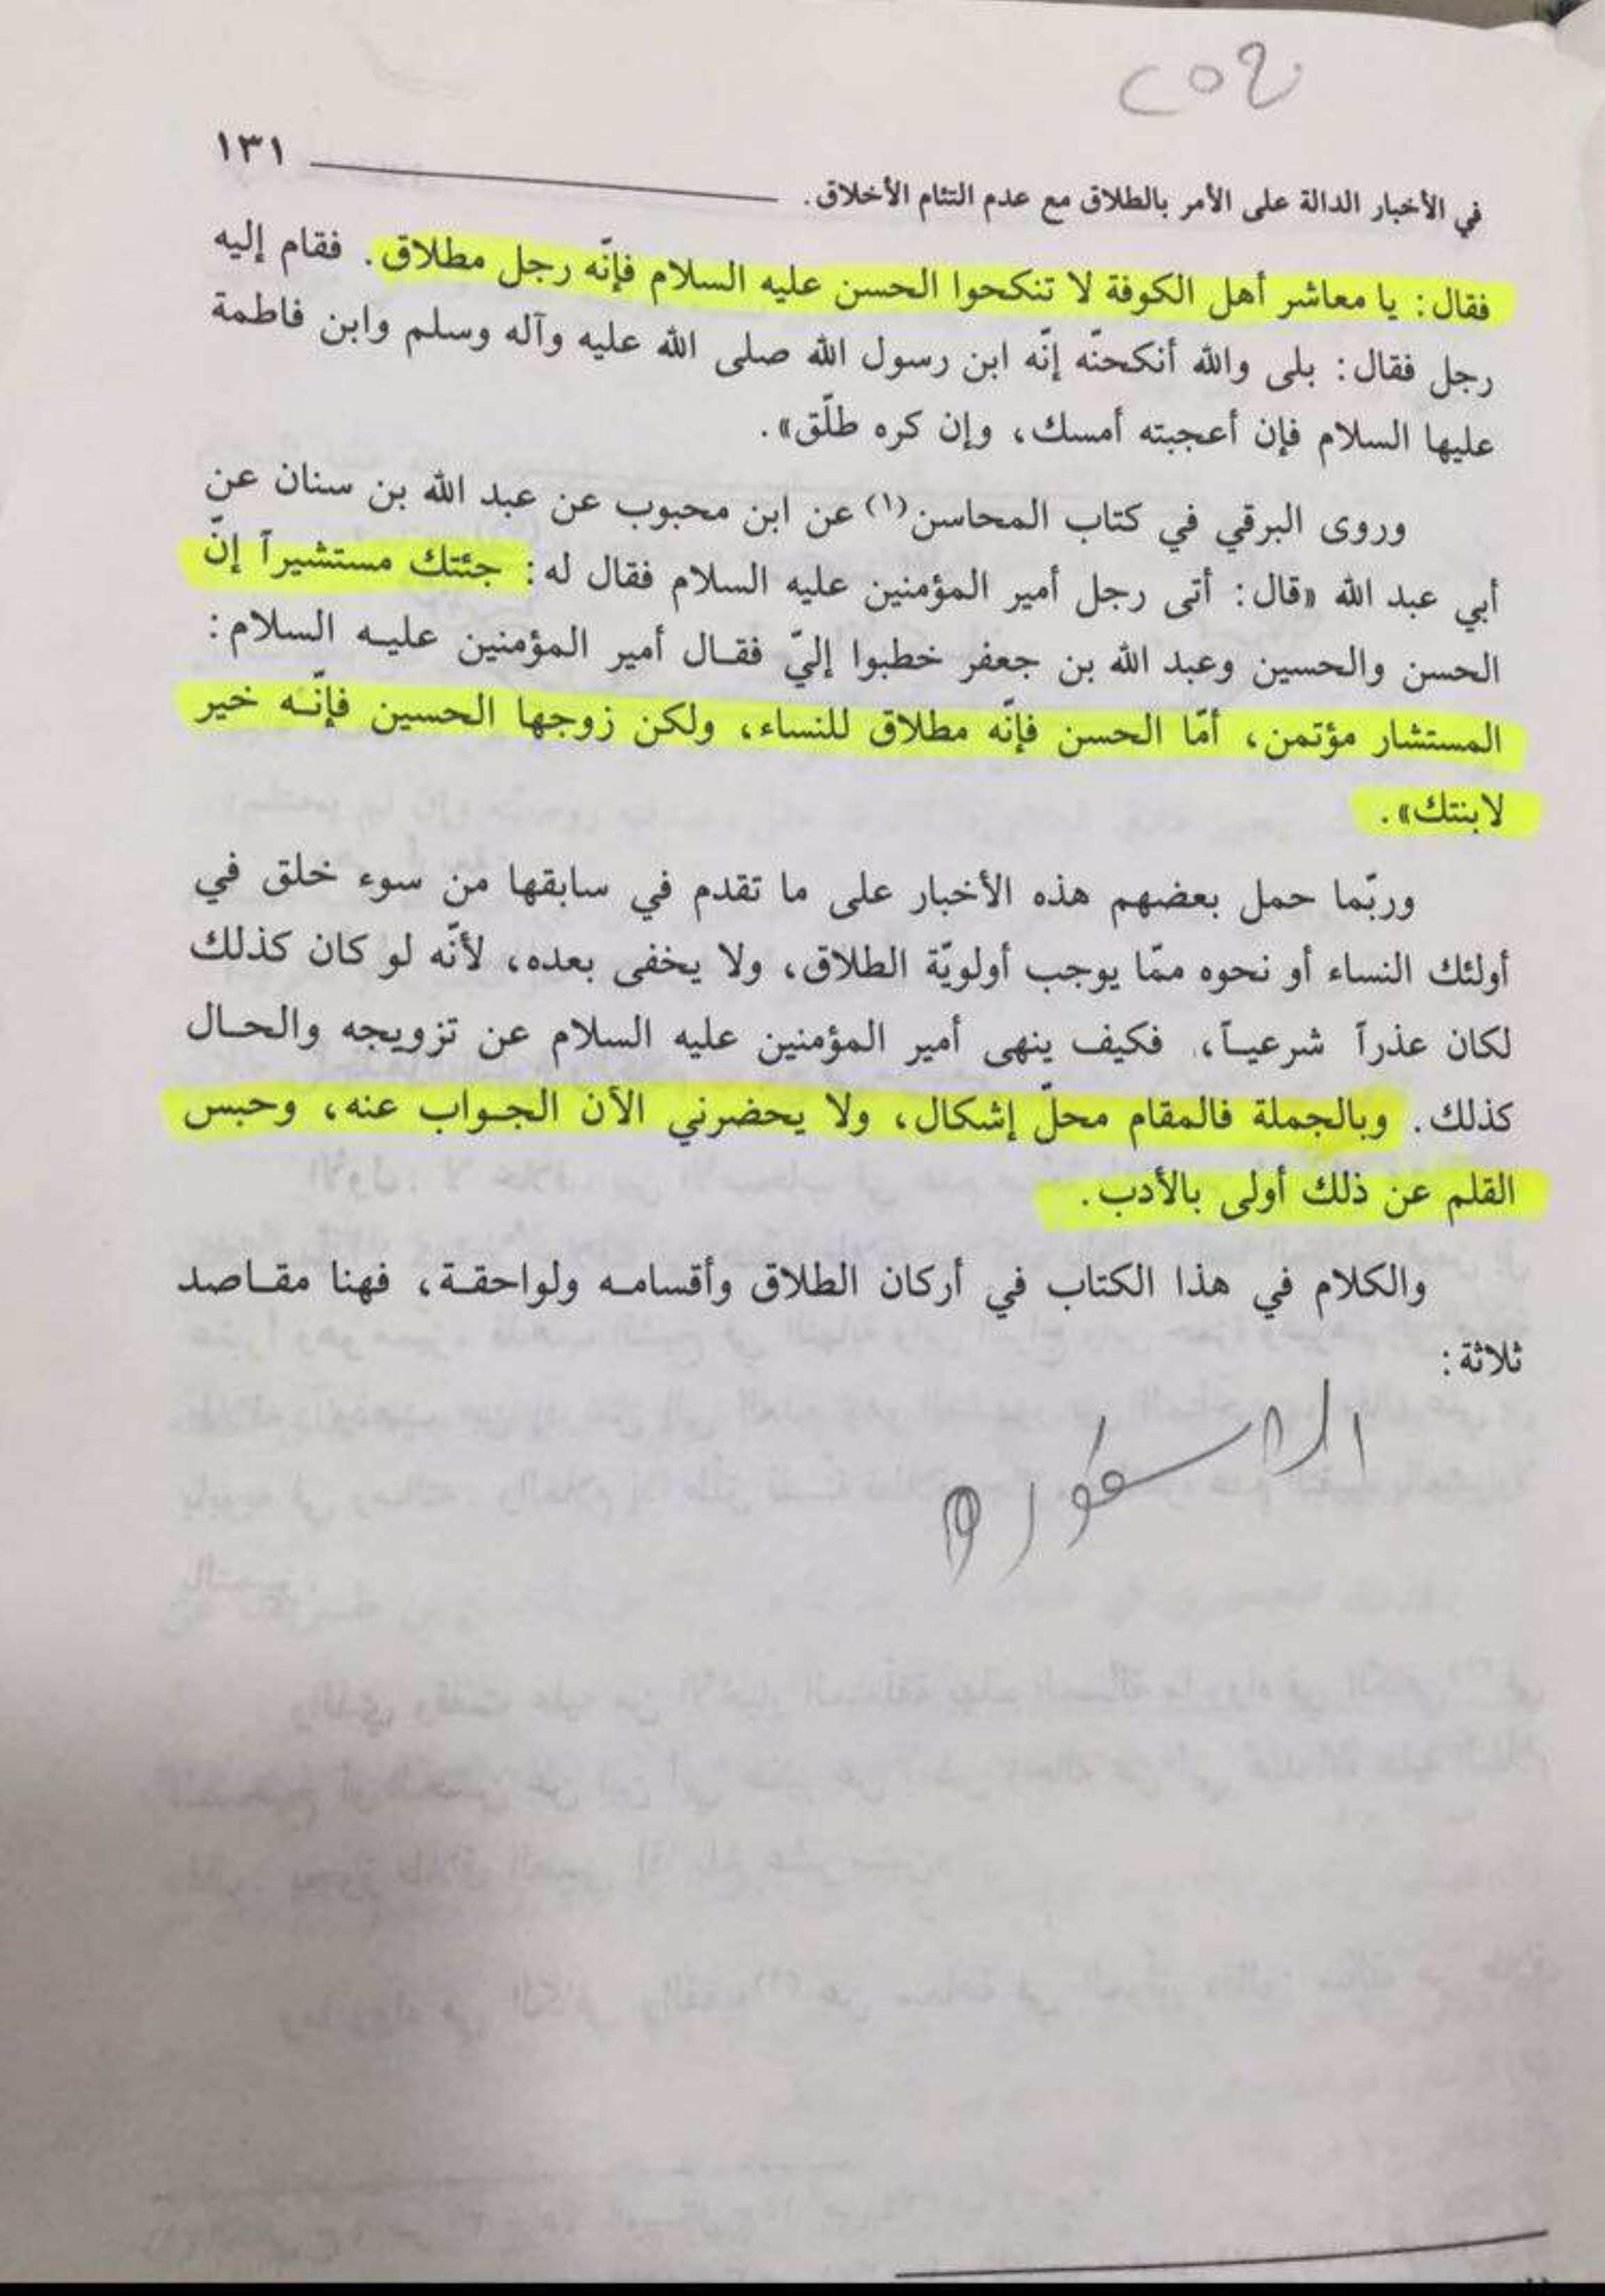 ١٣١
في الأخبار الدالة على الأمر بالطلاق مع عدم التئام الأخلاق.
فقال: يا معاشر أهل الكوفة لا تنكحوا الحسن عليه السلام فإنّه رجل مطلاق. فقام إليه
رجل فقال: بلى والله أنكحنّه إنّه ابن رسول الله صلى الله عليه وآله وسلم وابن فاطمة
عليها السلام فإن أعجبته أمسك، وإن كره طلّق».
وروى البرقي في كتاب المحاسن(١) عن ابن محبوب عن عبد الله بن سنان عن
أبي عبد الله «قال: أتى رجل أمير المؤمنين عليه السلام فقال له: جئتك مستشيراً إنّ
الحسن والحسين وعبد الله بن جعفر خطبوا إليّ فقـال أمير المؤمنين عليـه السلام:
المستشار مؤتمن، أمّا الحسن فإنّه مطلاق للنساء، ولكن زوجها الحسين فإنّـه خير
لابنتك».
وربّما حمل بعضهم هذه الأخبار على ما تقدم في سابقها من سوء خلق في
أولئك النساء أو نحوه ممّا يوجب أولويّة الطلاق، ولا يخفى بعده، لأنّه لو كان كذلك
لكان عذراً شرعيـاً، فكيف ينهى أمير المؤمنين عليه السلام عن تزويجه والحـال
كذلك. وبالجملة فالمقام محلّ إشكال، ولا يحضرني الآن الجـواب عنه، وحبس
القلم عن ذلك أولى بالأدب.
والكلام في هذا الكتاب في أركان الطلاق وأقسامـه ولواحقـة، فهنا مقـاصد
ثلاثة: